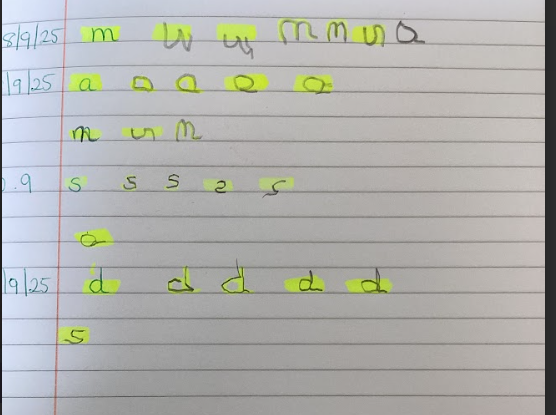 8/9/25 m m m m a
/9/25 a a a a a
m m
.9 s s s s
a
/9/25 d d d d d
s